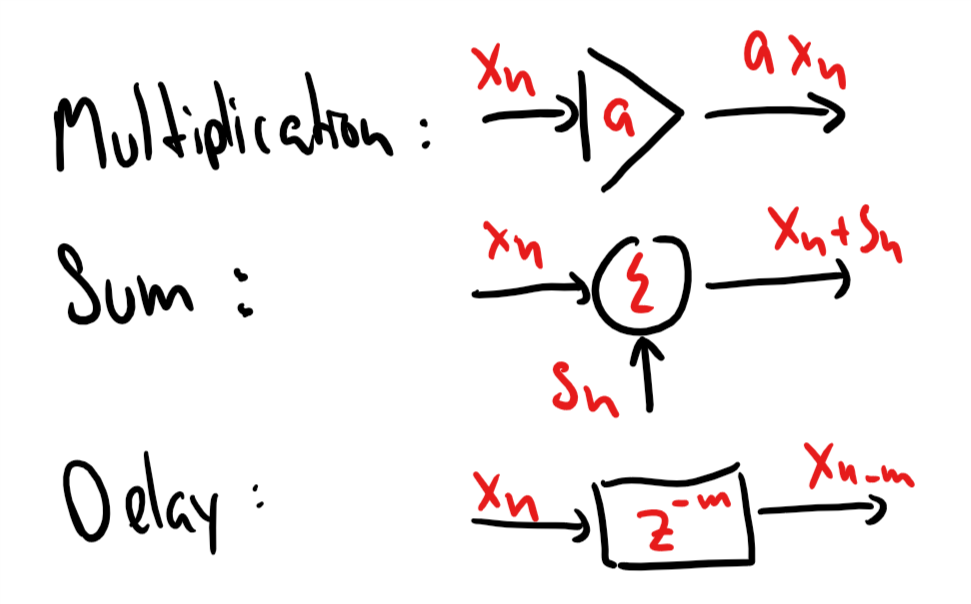 Multiplication : xₙ a a xₙ
Sum : xₙ Σ xₙ + sₙ
sₙ
Delay : xₙ z⁻ᵐ xₙ₋ₘ